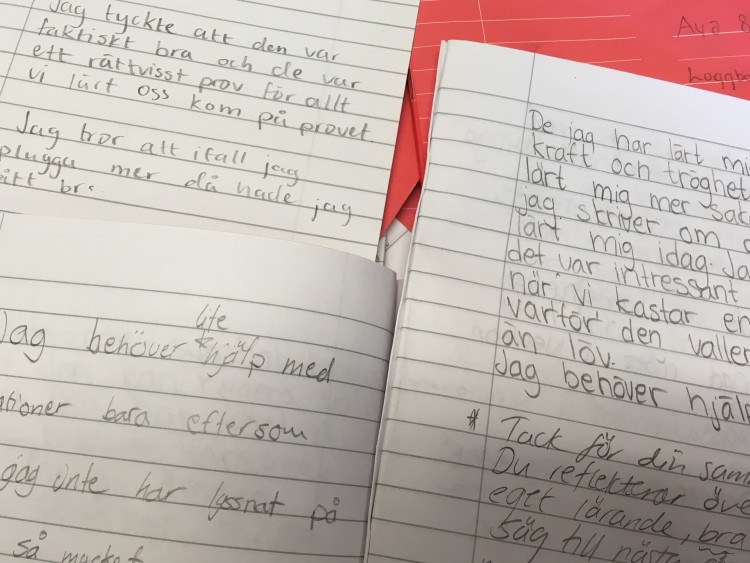 Jag tyckte att den var
faktiskt bra och de var
ett rättvisst prov för allt
vi lärt oss kom på provet.
Jag tror att ifall jag
plugga mer då hade jag
bra
Jag behöver lite hjälp med
bara eftersom
jag inte har lyssnat på
så mycket
Aya 8
Loggbo
De jag har lärt mi
kraft och tröghet
lärt mig mer sac
jag skriver om
lärt mig idag. Ja
det var intressant
när vi kastar en
varför den valler
än löv.
Jag behöver hjäl
* Tack för din sam
Du reflekterar öve
eget lärande, bra
Säg till nästa